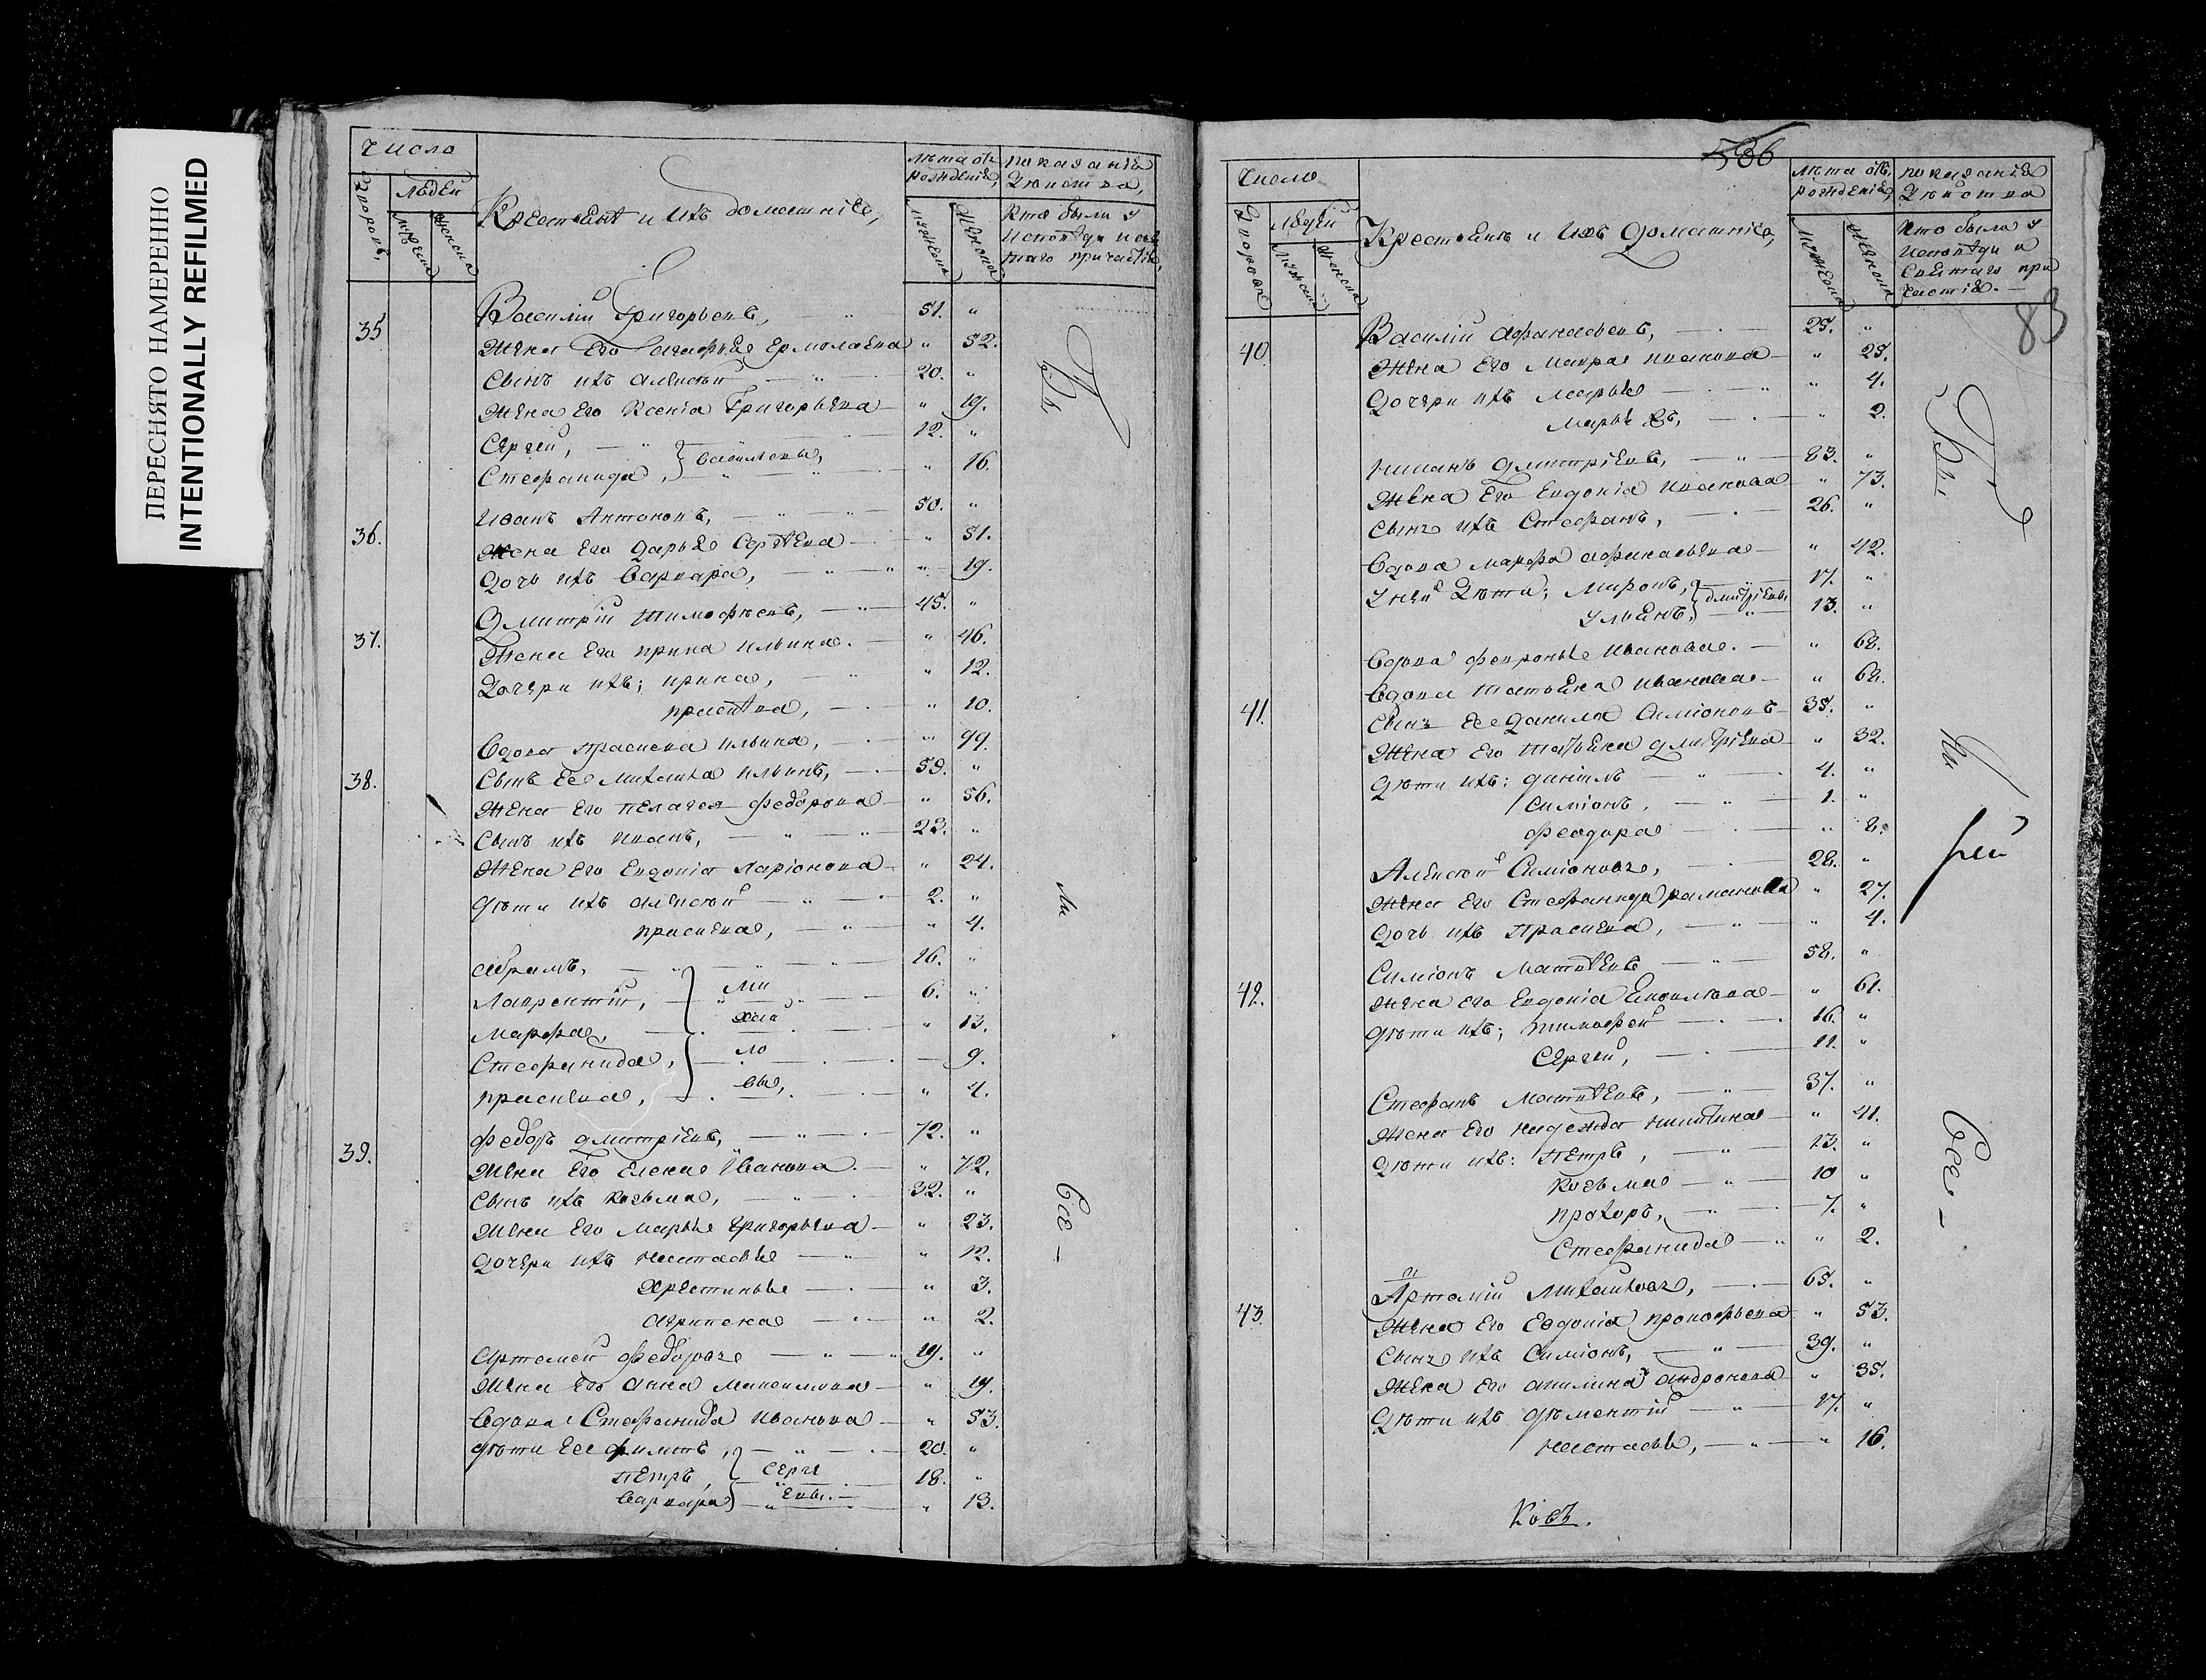 ПЕРЕСНЯТО НАМЕРЕННО
INTENTIONALLY REFILMED
Число
Дворовъ
Людей
Мужеска
Женска
Крестьянѣ и ихъ домашніе,
Лѣта отъ рожденія,
Мужеска
Женска
Показаніе Дѣйства,
Кто были у Исповѣди и свѣтаго причастіе,
35
Василій Григорьевъ, 51.
Жена Его Агафья Ермолаева 52.
Сынъ ихъ Алексѣй 20.
Жена Его Ксенія Григорьева 19.
Сергей, 12.
Стефанида, } Васильевы, 16.
36.
Иванъ Антоновъ, 50.
Жена Его Дарья Сергѣева 51.
Дочь ихъ Варвара, 19.
37.
Дмитрій Тимофѣевъ, 45.
Жена Его Ирина Ильина. 46.
Дочери ихъ; Ирина, 12.
Прасковья, 10.
38.
Вдова Прасковья Ильина, 99.
Сынъ Ее Михаила Ильинъ, 59.
Жена Его Пелагея Федорова 56.
Сынъ ихъ Иванъ, 23.
Жена Его Евдокія Ларіонова 24.
Дѣти ихъ Алексѣй 2.
Прасковья, 4.
Абрамъ, 16.
Лаврентій, Ми 6.
Марфа, хай 13.
Стефанида, ло 9.
Прасковья, вы, 4.
39.
Федоръ Дмитріевъ, 72.
Жена Его Елена Иванова. 72.
Сынъ ихъ Козьма, 32.
Жена Его Марья Григорьева 23.
Дочери ихъ Настасья 12.
Христинья 3.
Агрипена 2.
Артемей Федоровъ 19.
Жена Его Анна Максимова 19.
Вдова Стефанида Иванова 53.
Дѣти Ее Филипъ, 20.
Петръ, Серге 18.
Варвара } Евы. 13.
Бы
ли
Все
566
83
Число
Дворовъ
Людей
Мужеска
Женска
Крестьянъ и ихъ Домашніе,
Лѣта отъ рожденія,
Мужеска
Женска
Показаніе Дѣйства
Кто были у Исповѣди и Свѣтаго причастія.
40
Василій Афанасьевъ, 25.
Жена Его Мавра Иванова 25.
Дочери ихъ Марья 4.
Марья Жъ, 2.
Иванъ Дмитріевъ, 83.
Жена Его Евдокія Иванова 73.
Сынъ ихъ Стефанъ, 26.
Вдова Марфа Афанасьева 42.
У ней Дѣти; Миронъ, 17.
Ульянъ, } Дмитріевы 13.
Вдова Февронья Иванова. 68.
41.
Вдова Татьяна Иванова 68.
Сынъ Ее Данила Симіоновъ 35.
Жена Его Татьяна Дмитріева 32.
Дѣти ихъ: Даніилъ 4.
Симіонъ, 1.
Феодора 8.
Алексѣй Симіоновъ, 28.
Жена Его Стефанида Романова 27.
Дочь ихъ Прасковья, 4.
42.
Симіонъ Матвѣевъ 58.
Жена Его Евдокія 61.
Дѣти ихъ; Тимофей 16.
Сергей, 11.
Стефанъ Матвѣевъ, 37.
Жена Его Надежда Никитина 41.
Дѣти ихъ: Петръ, 13.
Козьма 10
Прохоръ, 7.
Стефанида 2.
43.
Артамій Михайловъ, 65.
Жена Его Евдокія Прокофьева 53.
Сынъ ихъ Симіонъ, 39.
Жена Его Акилина Андронова 35.
Дѣти ихъ Дѣментій 17.
Настасья, 16.
Бы
ли
рей
Все
Ковъ.